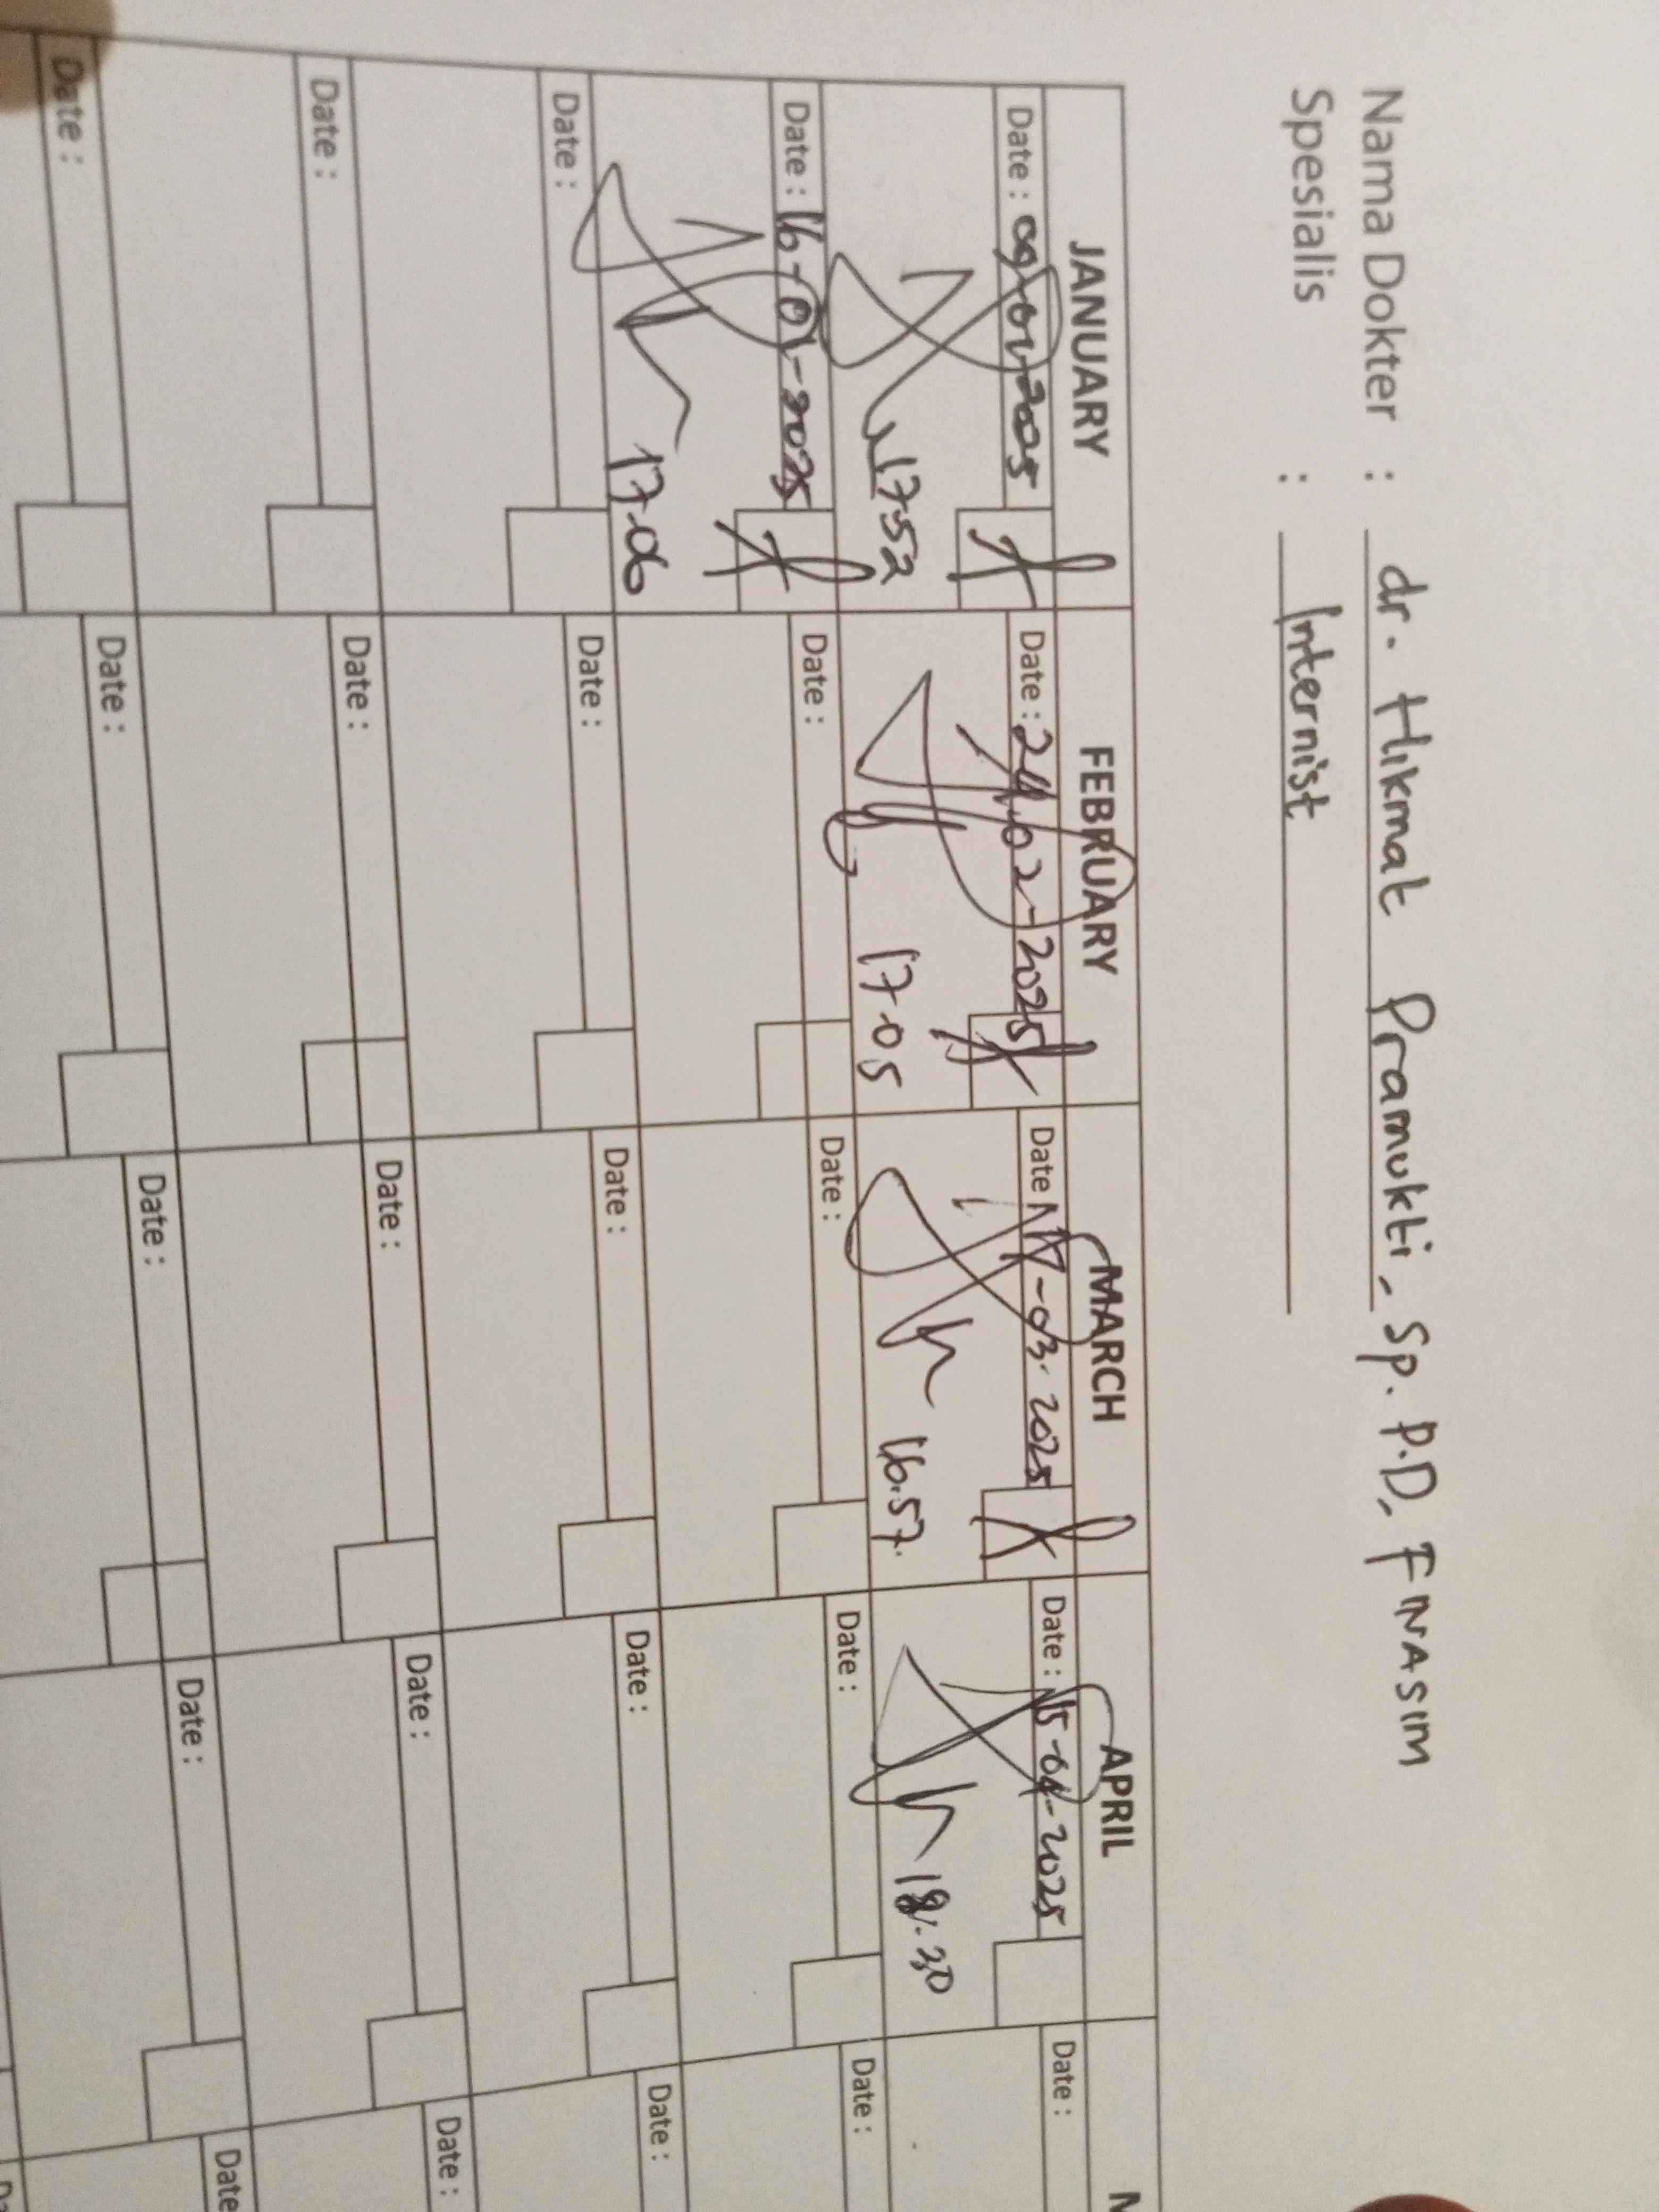 Nama Dokter : dr. Hikmat Pramukti, Sp. P.D, FINASIM
Spesialis : Internist
JANUARY FEBRUARY MARCH APRIL
Date : 09-01-2025 Date : 24.02-2025 Date 17-03-2025 Date : 15-04-2025 Date :
17.52 17.05 16.57. 18.30
Date : 16-01-2025 Date : Date : Date : Date :
17.06
Date : Date : Date : Date : Date :
Date : Date : Date : Date : Date :
Date : Date : Date : Date : Date